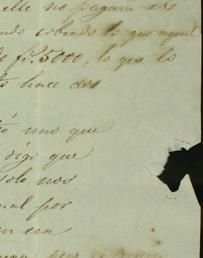 elle no pagara els
ando cobrado lo que aquel
de fr. 5000, lo que lo
to hace dos
uno que
digo que
solo nos
al por
en era